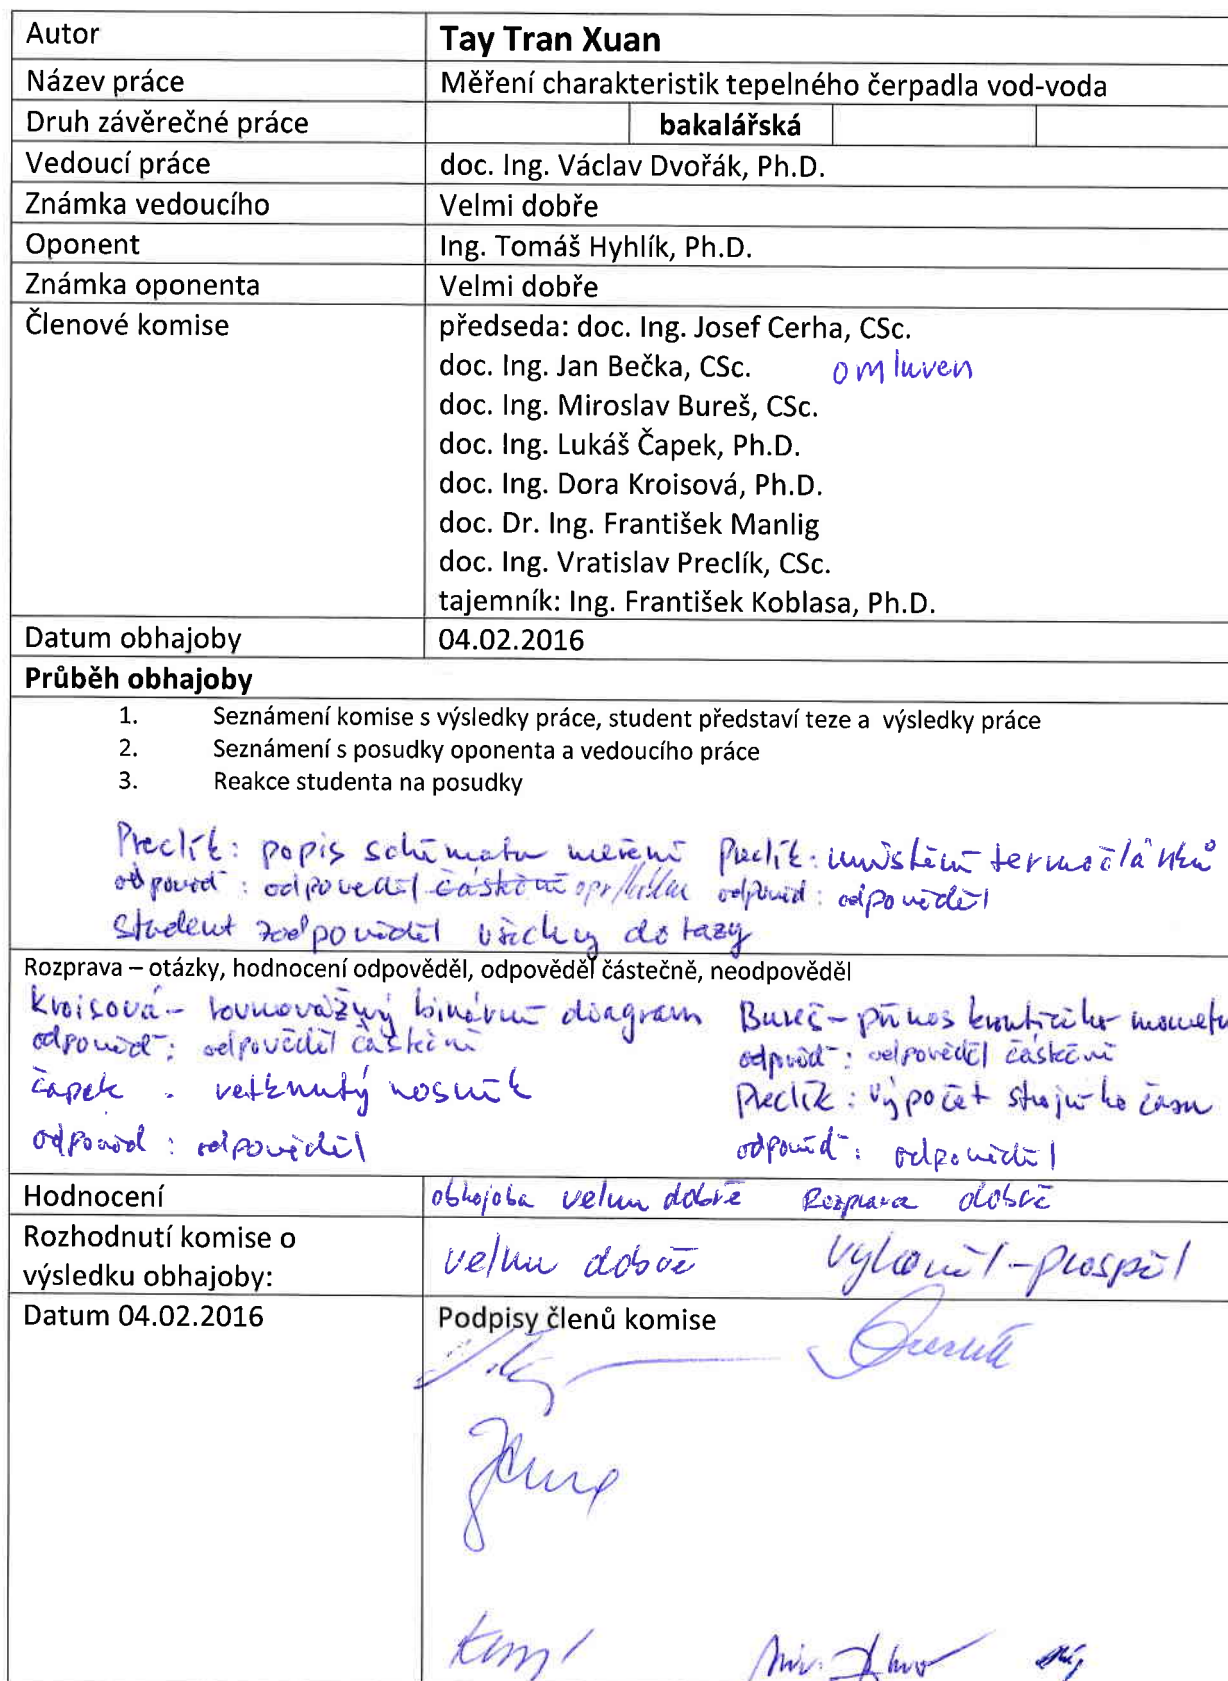 Autor Tay Tran Xuan
Název práce Měření charakteristik tepelného čerpadla vod-voda
Druh závěrečné práce bakalářská
Vedoucí práce doc. Ing. Václav Dvořák, Ph.D.
Známka vedoucího Velmi dobře
Oponent Ing. Tomáš Hyhlík, Ph.D.
Známka oponenta Velmi dobře
Členové komise předseda: doc. Ing. Josef Cerha, CSc.
doc. Ing. Jan Bečka, CSc. omluven
doc. Ing. Miroslav Bureš, CSc.
doc. Ing. Lukáš Čapek, Ph.D.
doc. Ing. Dora Kroisová, Ph.D.
doc. Dr. Ing. František Manlig
doc. Ing. Vratislav Preclík, CSc.
tajemník: Ing. František Koblasa, Ph.D.
Datum obhajoby 04.02.2016
Průběh obhajoby
1. Seznámení komise s výsledky práce, student představí teze a výsledky práce
2. Seznámení s posudky oponenta a vedoucího práce
3. Reakce studenta na posudky
Preclík: popis schématu měření Preclík: umístění termočlánků
odpověď: odpověděl částečně odpověď: odpověděl
Student zodpověděl všechny dotazy
Rozprava – otázky, hodnocení odpověděl, odpověděl částečně, neodpověděl
Kroisová - rovnovážný binární diagram Bureš - přínos krouticího momentu
odpověď: odpověděl částečně odpověď: odpověděl částečně
Čapek - vetknutý nosník Preclík: výpočet strojního času
odpověď: odpověděl odpověď: odpověděl
Hodnocení obhajoba velmi dobře Rozprava dobře
Rozhodnutí komise o
výsledku obhajoby: velmi dobře vykonal-prospěl
Datum 04.02.2016 Podpisy členů komise